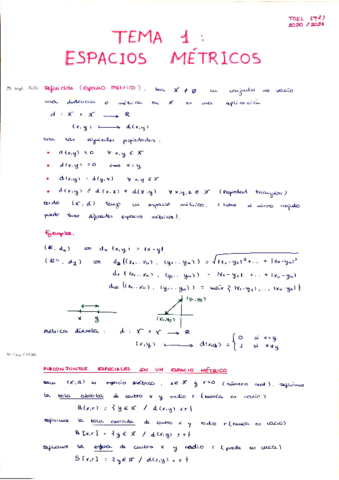 TOEL (T1)
2020/2021
TEMA 1:
ESPACIOS MÉTRICOS
Definición (Espacio métrico). Sea X ≠ ∅ un conjunto no vacío
una distancia o métrica en X es una aplicación
d: X × X → ℝ
(x,y) → d(x,y)
con las siguientes propiedades:
• d(x,y) ≥ 0 ∀ x,y ∈ X
• d(x,y) = 0 ⇔ x=y
• d(x,y) = d(y,x) ∀ x,y ∈ X
• d(x,y) ≤ d(x,z) + d(z,y) ∀ x,y,z ∈ X (Propiedad triangular)
(X,d) un espacio métrico. (Sobre el mismo conjunto
puede haber diferentes espacios métricos).
Ejemplos.
(ℝ, dᵤ) dᵤ(x,y) = |x-y|
x y
(x₁,x₂)
(y₁,y₂)
métrica discreta: d: X × X → ℝ
(x,y) → d(x,y) = { 0 si x=y
1 si x≠y
SUBCONJUNTOS ESPECIALES EN UN ESPACIO MÉTRICO
Sea (X,d) un espacio métrico, x ∈ X y r>0 (número real). Definimos
la bola abierta de centro x y radio r (nunca es vacío)
B(x,r) = {y ∈ X / d(x,y) < r}
Definimos la bola cerrada de centro x y radio r (nunca es vacío)
B[x,r] = {y ∈ X / d(x,y) ≤ r}
Definimos la esfera de centro x y radio r (puede ser vacía)
S[x,r] = {y ∈ X / d(x,y) = r}